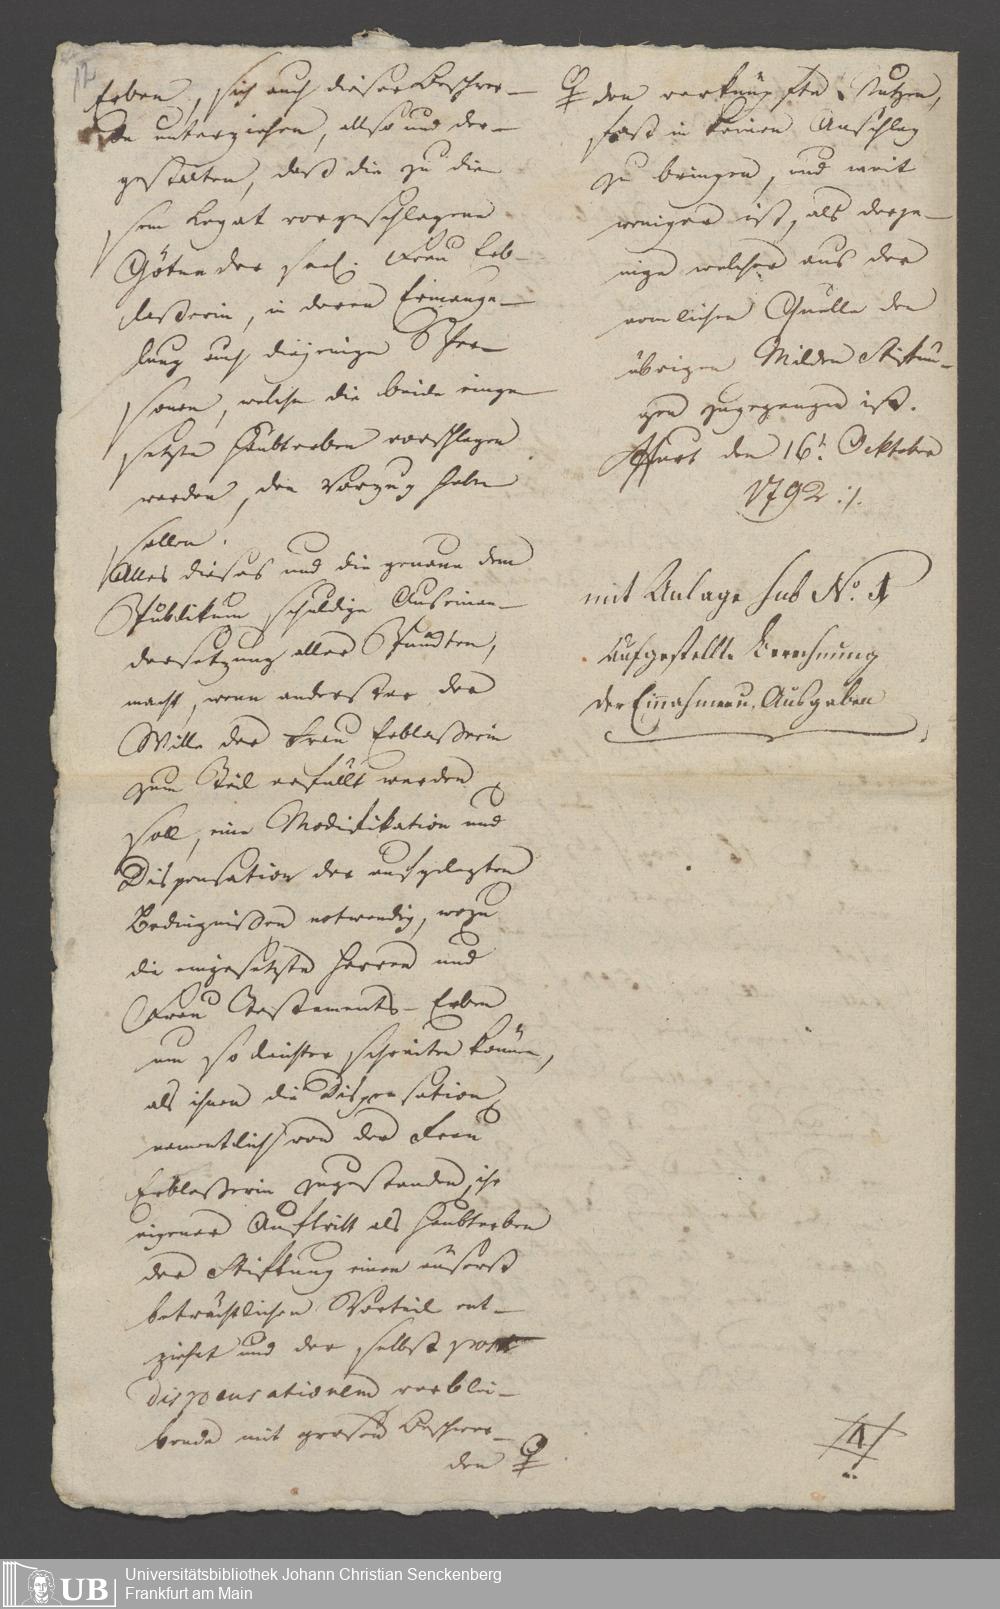 12
Erben, sich auch dieser Beschwer-
de unterziehen, allso und der-
gestalten, daß die zu die-
sem Legat vorgeschlagene
Göten der seel. Frau Erb-
laßerin, in deren Ermange-
lung auch diejenige Per-
sonen, welche die beide einge-
setzte Haubterben vorschlagen
werden, den Vorzug haben
sollen.
Alles dieses und die genaue dem
Publikum schuldige Auseinan-
dersetzung aller Punkten,
macht, wenn anderster der
Wille der Frau Erblaßerin
zum Teil erfüllt werden
soll, eine Modifikation und
Dispensation der aufgelegten
Bedingnißen notwendig, wozu
die eingesetzte Herren und
Frau Testaments-Erben
um so leichter schreiten können,
als ihnen die Dispensation
namentlich von der Frau
Erblaßerin zugestanden, ihr
eigener Auftritt als Haubterben
der Stiftung einen äuserst
beträchtlichen Vorteil ent-
ziehet und der selbst post
dispensationem verblei-
bende mit grosen Beschwer-
den
den verknüpfte Nutzen,
fast in keinen Anschlag
zu bringen, und weit
weniger ist, als derje-
nige welcher aus der
nemlichen Quelle den
übrigen Milden Stiftun-
gen zugegangen ist.
Ffurt den 16t. Oktober
1792 :/.
mit Anlage sub No. 1
aufgestellte Berechnung
der Einnahme u. Ausgaben
UB
Universitätsbibliothek Johann Christian Senckenberg
Frankfurt am Main